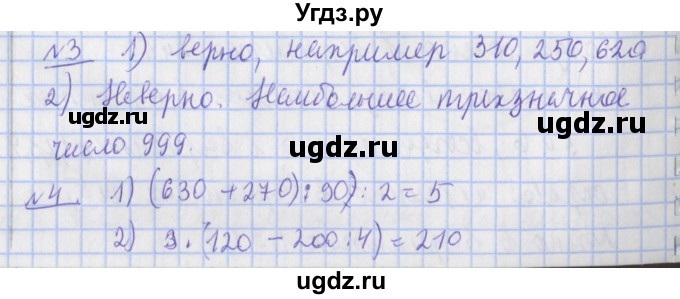 Угдз.ру
№3 1) верно, например 310, 250, 620
2) Неверно. Наибольшее трехзначное
ugdz.ru ugdz.ru ugdz.ru
число 999.
№4. 1) (630 + 270) : 90) : 2 = 5
ugdz.ru ugdz.ru
2) 3 · (120 - 200 : 4) = 210
ugdz.ru ugdz.ru ugdz.ru